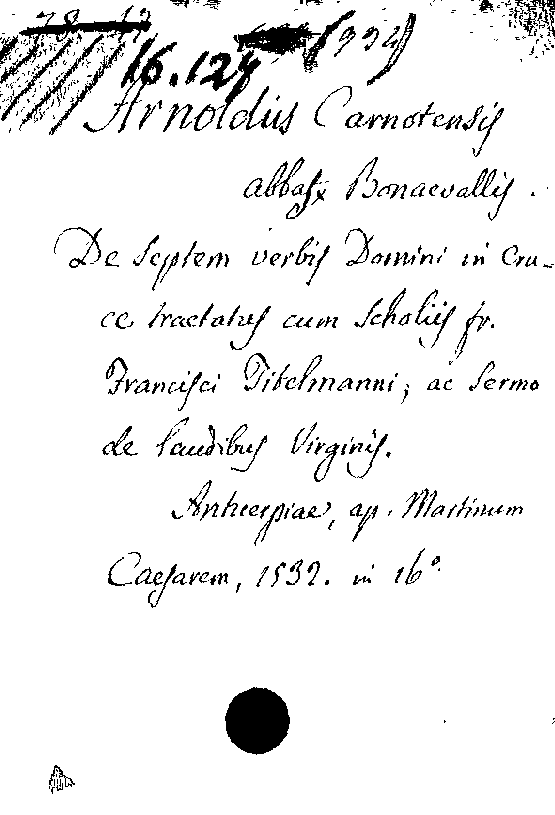 16.124
Arnoldus Carnotensis
abbas Bonaevallis.
De Septem verbis Domini in Cru-
ce tractatus cum Scholiis fr.
Francisci Titelmanni; ac Sermo
de laudibus Virginis.
Antverpiae, ap. Martinum
Caesarem, 1532. in 16°.